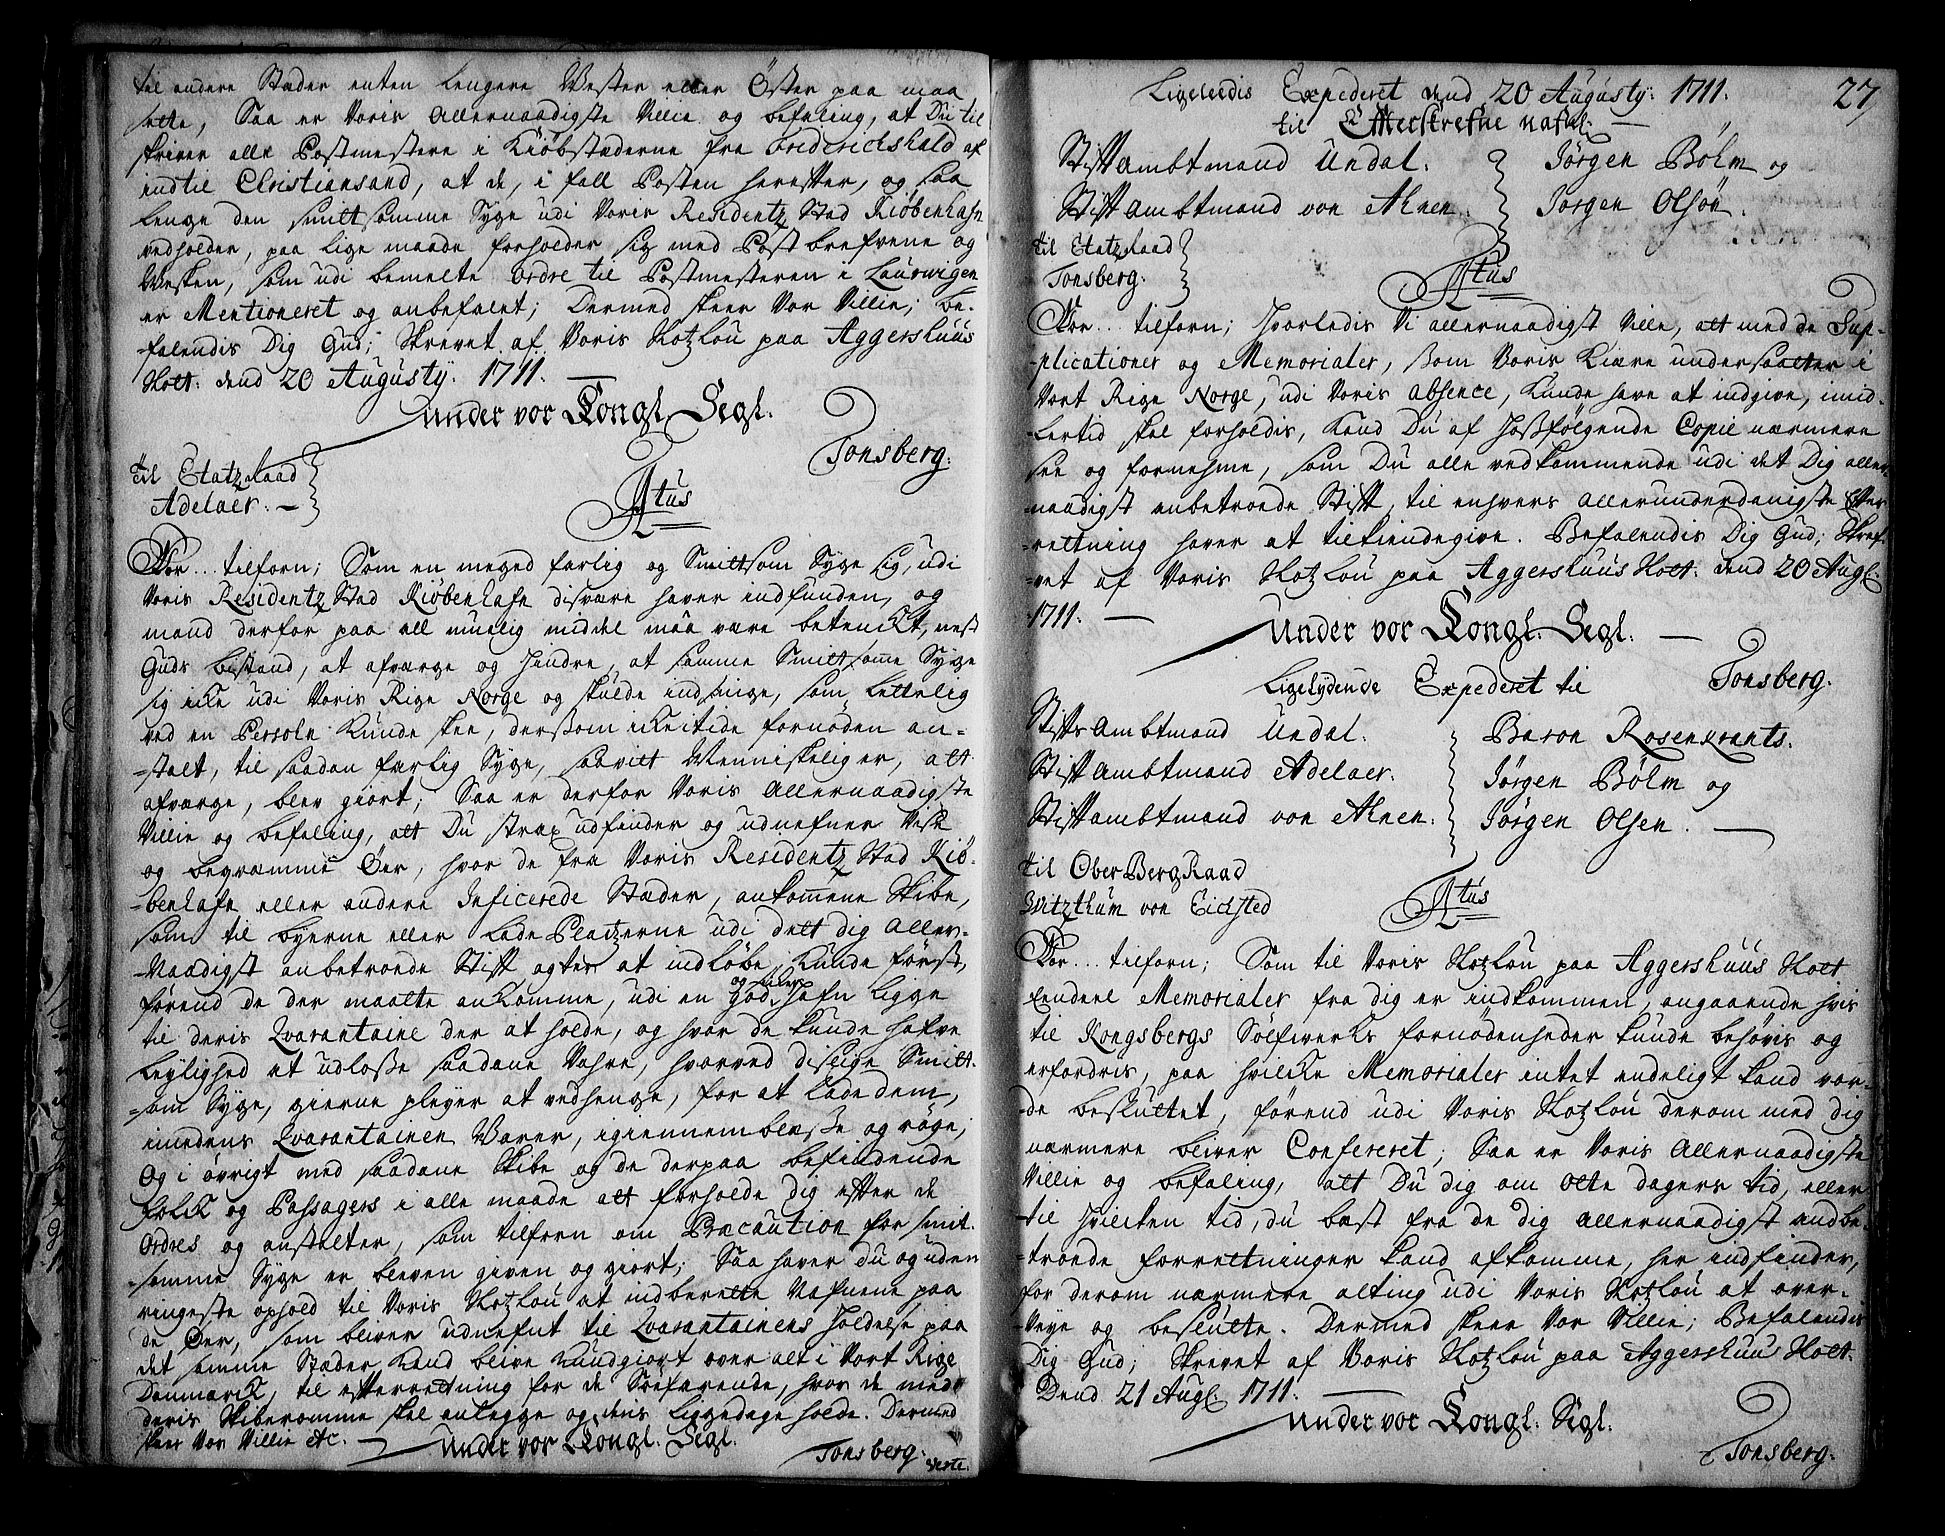 til andre Stæder enten lengere Wester eller Öster paa maa
sette, Saa er Voris Allernaadigste Villie og befaling, at Du til
skriver alle Postmestere i Kiöbstæderne fra Fridericshald af
indtil Christiansand, at de, i fall Posten herefter, og saa
lenge den smittsomme Syge udi Voris Residentz Stad Kiöbenhafn
vedholder, paa lige maade forholder sig med Post brefvene og
Wesken, som udi bemelte ordre til Postmesteren i Laurwigen
er Mentioneret og anbefalet; Dermed skeer Vor Villie; be-
-falendis Dig Gud; Skrevet af Voris Slotzlou paa Aggershuus
Slott. dend 20 Augusty. 1711.
Under vor Kongl. Segl.
Tonsberg.
til Etatz Raad
Adelaer.
Atus
Vor... tilforn; Som en meged farlig og Smittsom Syge sig, udi
Voris Residentz Stad Kiöbenhafn disvære haver indfunden, og
mand derfor paa all muelig middel maa være betenckt, nest
Guds bestand, at afværge og hindre, at samme Smittsomme Syge
sig icke udi Voris Rige Norge og skulde indsnige, som lettelig
ved en Persohn kunde skee, dersom icke i tide fornöden an-
-stalt, til saadan farlig Syge, saavitt Menniskeligt er, att
afværge, blev giort; Saa er derfor Voris Allernaadigste
Villie og befaling, att Du strax udfinder og udnefner visse
og beqvæmme Öer, hvor de fra Voris Residentz Stad Kiö-
-benhafn eller andre Inficerede Stæder, ankomne Skibe,
som til byerne eller Lade Platzerne udi dett dig Aller-
-Naadigst anbetroede Stift agter at indlöbe, kunde först,
förend de der maatte ankomme, udi en god og siker Hafn ligge
til deris Qvarantaine der at holde, og hvor de kunde hafve
leylighed at udlosse saadane Vahre, hvorved dislige Smitt-
-som Syge, gierne pleyer at vedhenge, for at lade dem,
imedens Qvarantainen Varer, igiennemblæsse og röge;
Og i övrigt med saadane Skibe og de derpaa befindende
folck og Passagers i alle maade att forholde dig efter de
Ordres og anstalter, som tilforn om Præcaution for smit-
-somme Syge er bleven given og giort; Saa haver du og uden
ringeste ophold til Voris Slotzlou at indberette Nafnene paa
de Öer, som bliver udnefnt til Qvarantainens holdelse paa
det samme Stæder kand blive kundgiort over alt i Vort Rige
Danmarck, til efterretning for de Söefarende, hvor de med
deris Skiberomme skal anlegge og deris liggedage holde. Dermed
skeer Vor Villie etc.
Under vor Kongl. Segl.
Tonsberg.
verte.
27
Ligeledis Expederet dend 20 Augusty. 1711.
til Efterskrefne nafnl.
Stift Ambtmand Undal.
Stift Ambtmand von Ahnen.
Jörgen Bölm og
Jörgen Olsön.
til Etatz Raad
Tonsberg.
Atus
Vor... tilforn; Hvorledis Vi allernaadigst Ville, att med de Sup-
-plicationer og Memorialer, som Voris kiære undersaatter i
Vort Rige Norge, udi Voris absence, kunde have at indgive, imid-
-lertid skal forholdis, kand Du af hosfölgende Copie nærmere
see og fornehme, som Du alle vedkommende udi det Dig aller-
-naadigst anbetroede Stift, til enhvers allerunderdanigste Efter-
-rettning haver at tilkiendegive. Befalendis Dig Gud; Skref-
-vet af Voris Slotzlou paa Aggershuus Slott. dend 20 Augl:
1711.
Under vor Kongl. Segl.
Tonsberg.
Ligelydende Expederet til
Stifts Ambtmand Undal.
Stift Ambtmand Adelaer.
Stiftambtmand von Ahnen.
Baron Rosenkrants.
Jörgen Bölm og
Jörgen Olsen.
til Ober Berg Raad
Witzthum von Eichsted
Atus
Vor... tilforn; Som til Voris Slotzlou paa Aggershuus Slott
Memorialer fra dig er indkommen, angaaende hvis
til Kongsbergs Sölfwercks fornödenheder kunde behövis og
erfordris, paa hvilcke Memorialer intet endeligt kand vor-
-de besluttet, förend udi Voris Slotzlou derom med dig
nærmere bliver Confereret; Saa er Voris Allernaadigste
Villie og befaling, att Du dig om otte dagers tid, eller
til hvilcken tid, du best fra de dig allernaadigst andbe-
-troede forrettninger kand afkomme, her indfinder,
for derom nærmere alting udi Voris Slotzlou at over-
-veye og beslutte. Dermed skeer Vor Villie; Befalendis
Dig Gud; Skrevet af Voris Slotzlou paa Aggershuus Slott.
Dend 21 Augl. 1711.
Under vor Kongl. Segl.
Tonsberg.